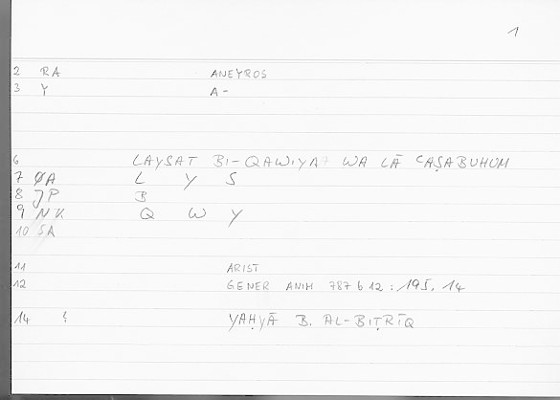 1
2 RA ANEYROS
3 Y A-
6 LAYSAT BI-QAWIYA WA LĀ ʿAṢABUHUM
7 ØA L Y S
8 JP B
9 NK Q W Y
10 SA
11 ARIST
12 GENER ANIM 787 b 12 : 195, 14
14 YAḤYĀ B. AL-BIṬRĪQ